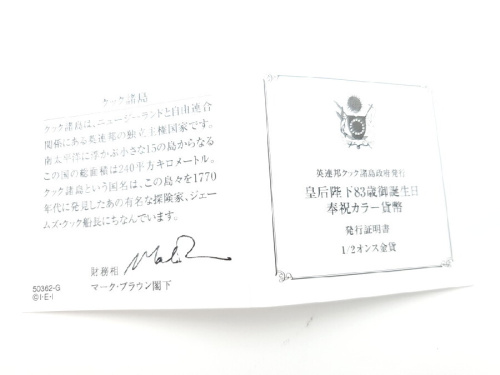 クック諸島
クック諸島は、ニュージーランドと自由連合
関係にある英連邦の独立主権国家です。
南太平洋に浮かぶ小さな15の島からなる
この国の総面積は240平方キロメートル。
クック諸島という国名は、この島々を1770
年代に発見したあの有名な探険家、ジェー
ムズ・クック船長にちなんでいます。
財務相
マーク・ブラウン閣下
50362-G
©I・E・I
英連邦クック諸島政府発行
皇后陛下83歳御誕生日
奉祝カラー貨幣
発行証明書
1/2オンス金貨